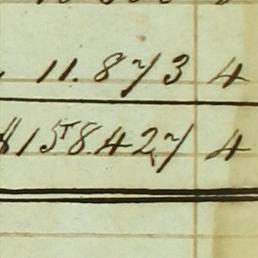 11.873 4
$158.427 4